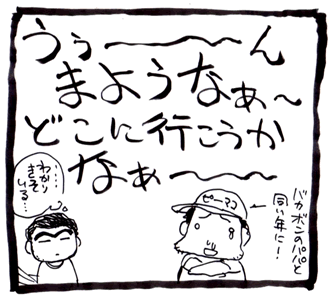 うぅ〜〜ん
まようなぁ〜
どこに行こうか
なぁ〜〜
バカボンのパパと
同い年に!
ピーマン